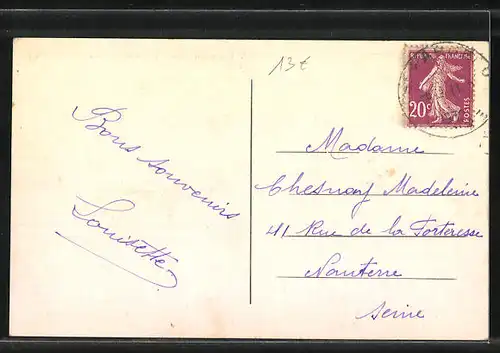 13€
FRANCAISE
20c
POSTES
Bons souvenirs
Louisette
Madame
Chesnoy Madeleine
41 Rue de la Forteresse
Nanterre
Seine